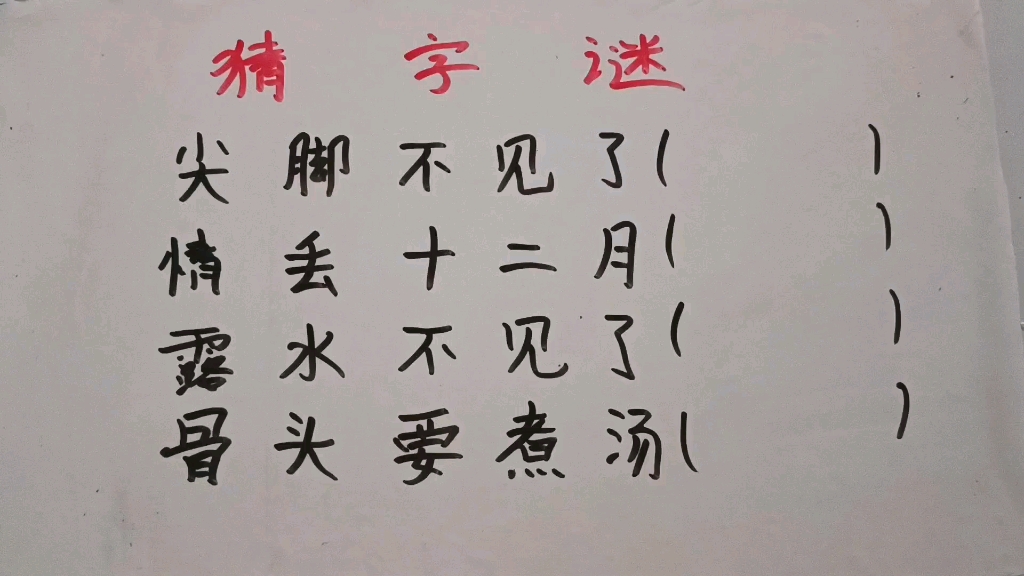 猜字谜
尖脚不见了( )
情丢十二月( )
露水不见了( )
骨头要煮汤( )